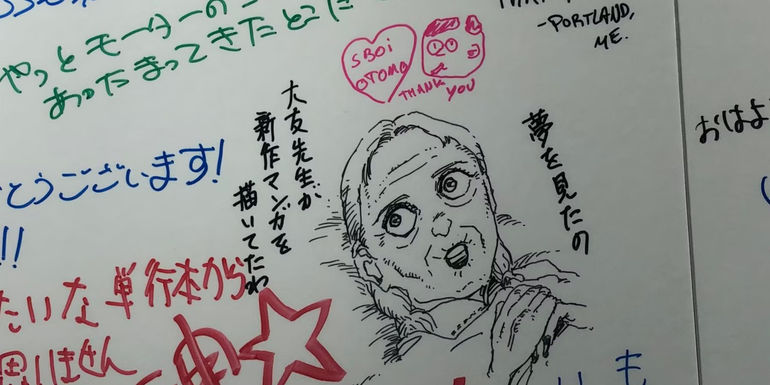 やっとモーターの
あったまってきたとこだ
-PORTLAND,
ME.
SBOi
OTOMO
THANK
YOU
夢を見たの
大友先生が
新作マンガを
描いてたわ
おはよ
とうございます!
!!
たいな単行本から
思いません